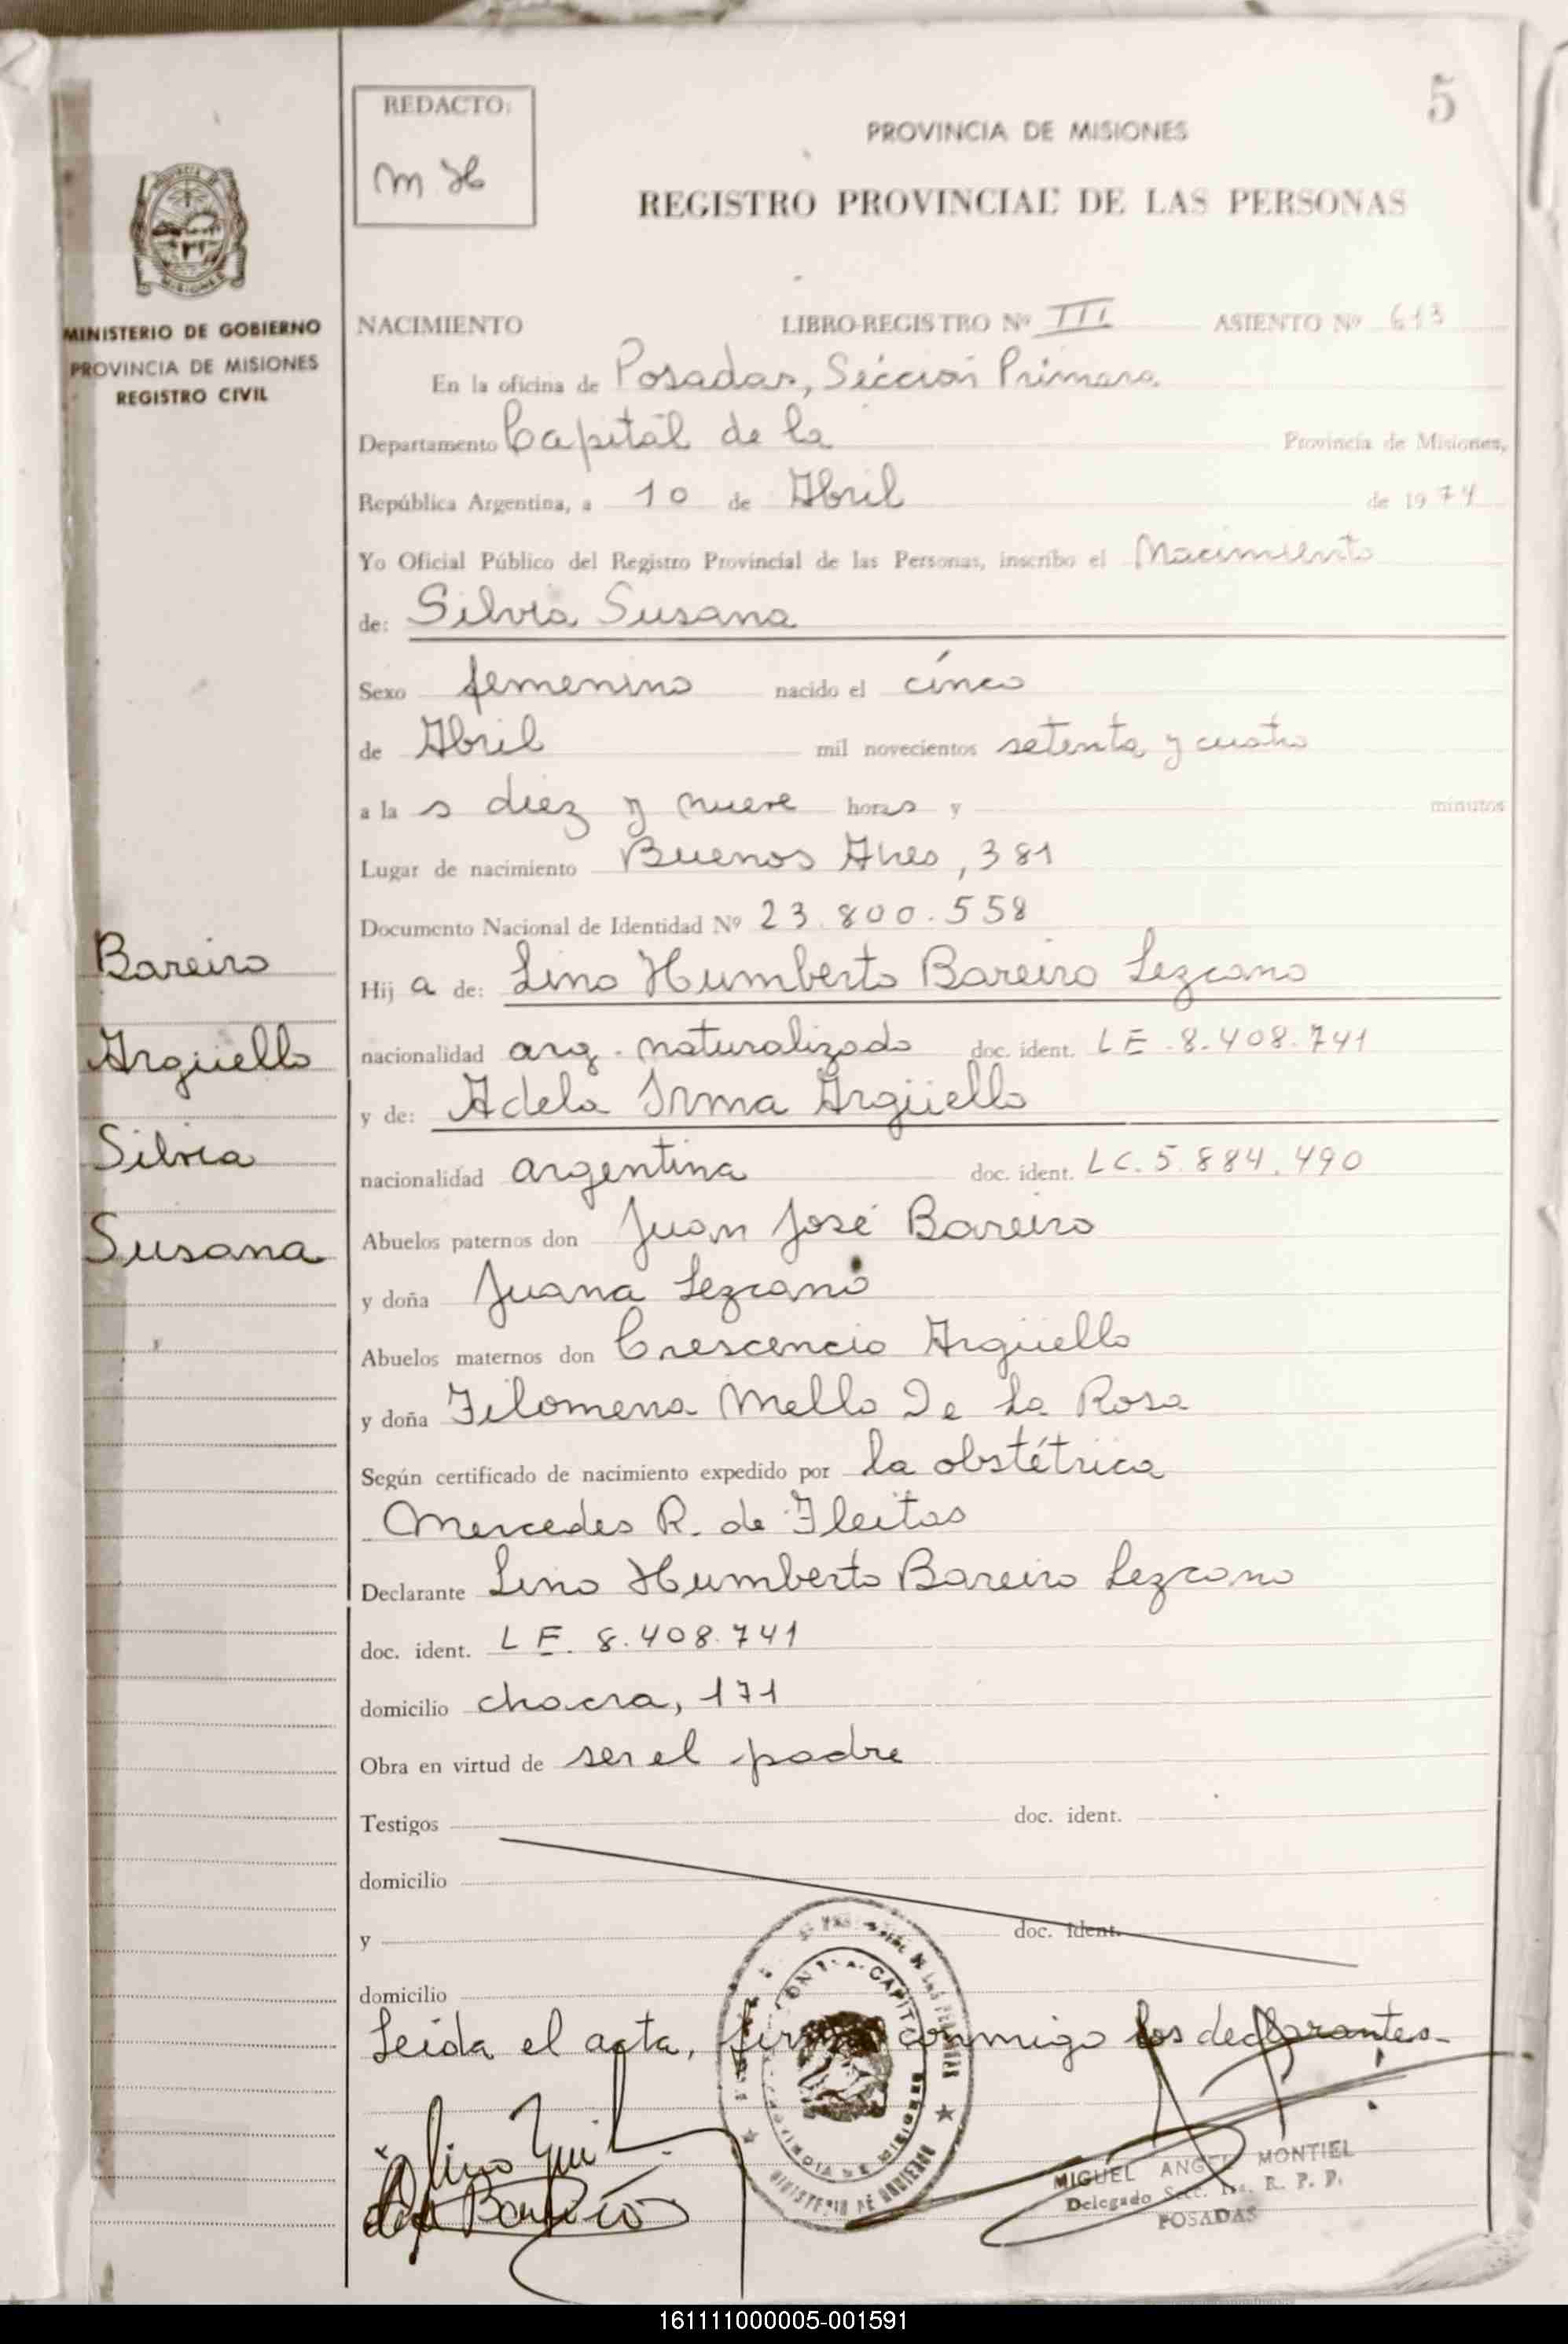 5
REDACTO:
m H
PROVINCIA DE MISIONES
REGISTRO PROVINCIAL DE LAS PERSONAS
MINISTERIO DE GOBIERNO
PROVINCIA DE MISIONES
REGISTRO CIVIL
NACIMIENTO LIBRO-REGISTRO Nº III ASIENTO Nº 613
En la oficina de Posadas, Sección Primera
Departamento Capitál de la Provincia de Misiones,
República Argentina, a 10 de Abril de 1974
Yo Oficial Público del Registro Provincial de las Personas, inscribo el Nacimiento
de: Silvia Susana
Sexo femenino nacido el cinco
de Abril mil novecientos setenta y cuatro
a la s diez y nueve horas y minutos
Lugar de nacimiento Buenos Aires, 381
Documento Nacional de Identidad Nº 23.800.558
Bareiro
Argüello
Silvia
Susana
Hij a de: Lino Humberto Bareiro Lezcano
nacionalidad arg. naturalizado doc. ident. LE 8.408.741
y de: Adela Irma Argüello
nacionalidad argentina doc. ident. LC. 5.884.490
Abuelos paternos don Juan José Bareiro
y doña Juana Lezcano
Abuelos maternos don Crescencio Argüello
y doña Filomena Mello De La Rosa
Según certificado de nacimiento expedido por la obstétrica
Mercedes R. de Fleitas
Declarante Lino Humberto Bareiro Lezcano
doc. ident. LE. 8.408.741
domicilio chacra, 171
Obra en virtud de ser el padre
Testigos doc. ident.
domicilio
y doc. ident.
domicilio
Leída el acta, firman conmigo los declarantes-
MINISTERIO DE GOBIERNO
MIGUEL ANGEL MONTIEL
Delegado Secc. 1ra. R. P. P.
POSADAS
161111000005-001591